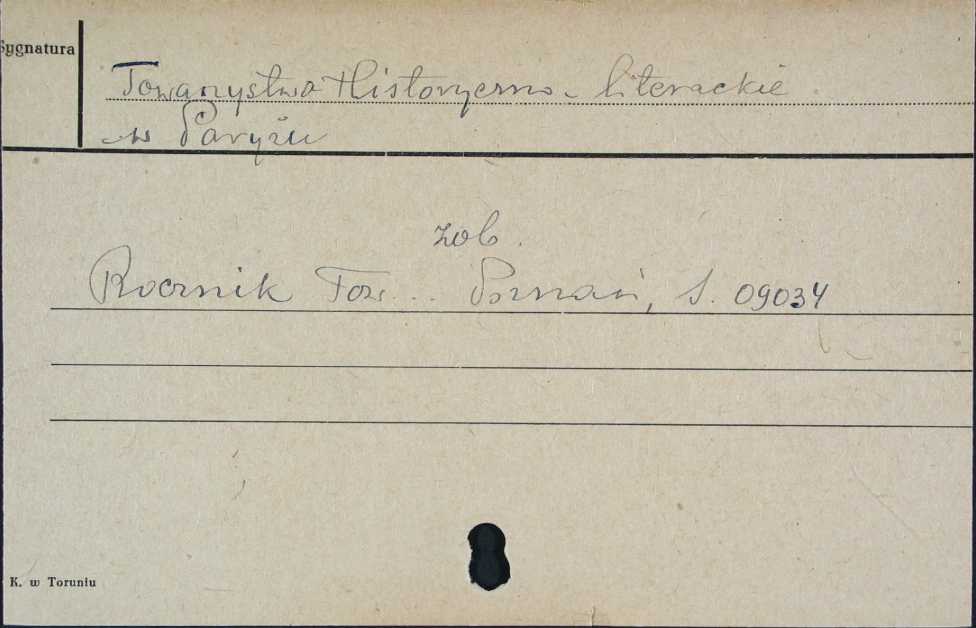 Sygnatura
Towarzystwo Historyczno-literackie
w Paryżu
zob.
Rocznik Tow... Poznań, S. 09034
K. w Toruniu